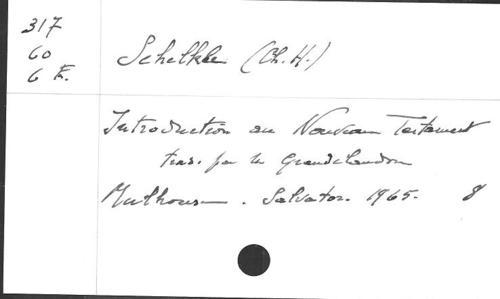 317
60
6 E.
Schelkle (Ch. H.)
Introduction au Nouveau Testament
trad. par M. Grandclaudon
Mulhouse. Salvator. 1965. 8